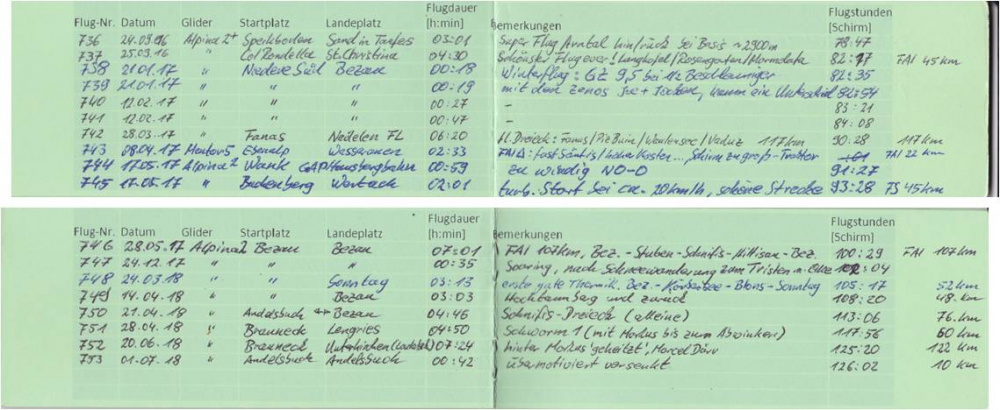 Flug-Nr. Datum Glider Startplatz Landeplatz Flugdauer [h:min] Bemerkungen Flugstunden [Schirm]
736 24.09.16 Alpina 2+ Speikboden Sand in Taufers 03:01 Super Flug Ahrntal hin/rück bei Basis ~2900m 78:47
737 25.09.16 " Col Rondella St. Christina 04:30 Schönster Flug ever! Langkofel/Rosengarten/Marmolada 82:17 FAI 45 km
738 21.01.17 " Niedere Süd Bezau 00:18 Winterflug: GZ 9,5 bei 1. 82:35
739 21.01.17 " " " 00:19 mit dem Zenos Sue + Jochen, kaum ein Unterschied 82:54
740 12.02.17 " " " 00:27 - 83:21
741 12.02.17 " " " 00:47 - 84:08
742 28.03.17 " Fanas Nedelen FL 06:20 fl. Dreieck: Fanas/Piz Buin//Vaduz 117 km 90:28 117 km
743 08.04.17 Mentor 5 Ebenalp Wasserauen 02:33 FAI Δ: fast Säntis/Hoher Kasten..., Schirm zu groß - Trotter FAI 22 km
744 17.05.17 Alpina 2 Wank GAP/Hausbergbahn 00:59 zu windig NO-O 91:27
745 17.05.17 " Buchenberg Wertach 02:01 turb. Start bei ca. 20km/h, schöne Strecke 93:28 FS 45 km
Flug-Nr. Datum Glider Startplatz Landeplatz Flugdauer [h:min] Bemerkungen Flugstunden [Schirm]
746 28.05.17 Alpina 2 Bezau Bezau 07:01 FAI 107km, Bez.-Stuben-Schnifis-Hittisau-Bez. 100:29 FAI 107 km
747 24.12.17 " " " 00:35 Soaring, nach Schneewanderung zum 102:04
748 24.03.18 " " Sonntag 03:13 erste gute Thermik. Bez-Körbersee-Blons-Sonntag 105:17 52 km
749 14.04.18 " " Bezau 03:03 Hochtannberg und zurück 108:20 48 km
750 21.04.18 " Andelsbuch Bezau 04:46 Schnifis-Dreieck (alleine) 113:06 76 km
751 28.04.18 " Brauneck Lengries 04:50 Schworm 1 (mit Markus bis zum Abwinken) 117:56 60 km
752 20.06.18 " Brauneck 07:24 hinter Markus 'geheizt', Marcel Dürr 125:20 122 km
753 01.07.18 " Andelsbuch Andelsbuch 00:42 übermotiviert versenkt 126:02 10 km